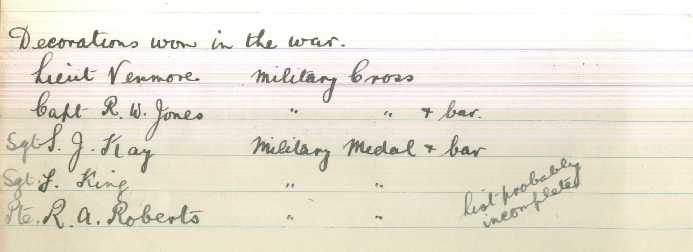 Decorations won in the war.
Lieut Venmore Military Cross
Capt R. W. Jones " " & bar.
Sgt S. J. Kay Military Medal & bar
Sgt F. King " "
Pte. R. A. Roberts " "
List probably
incompleted